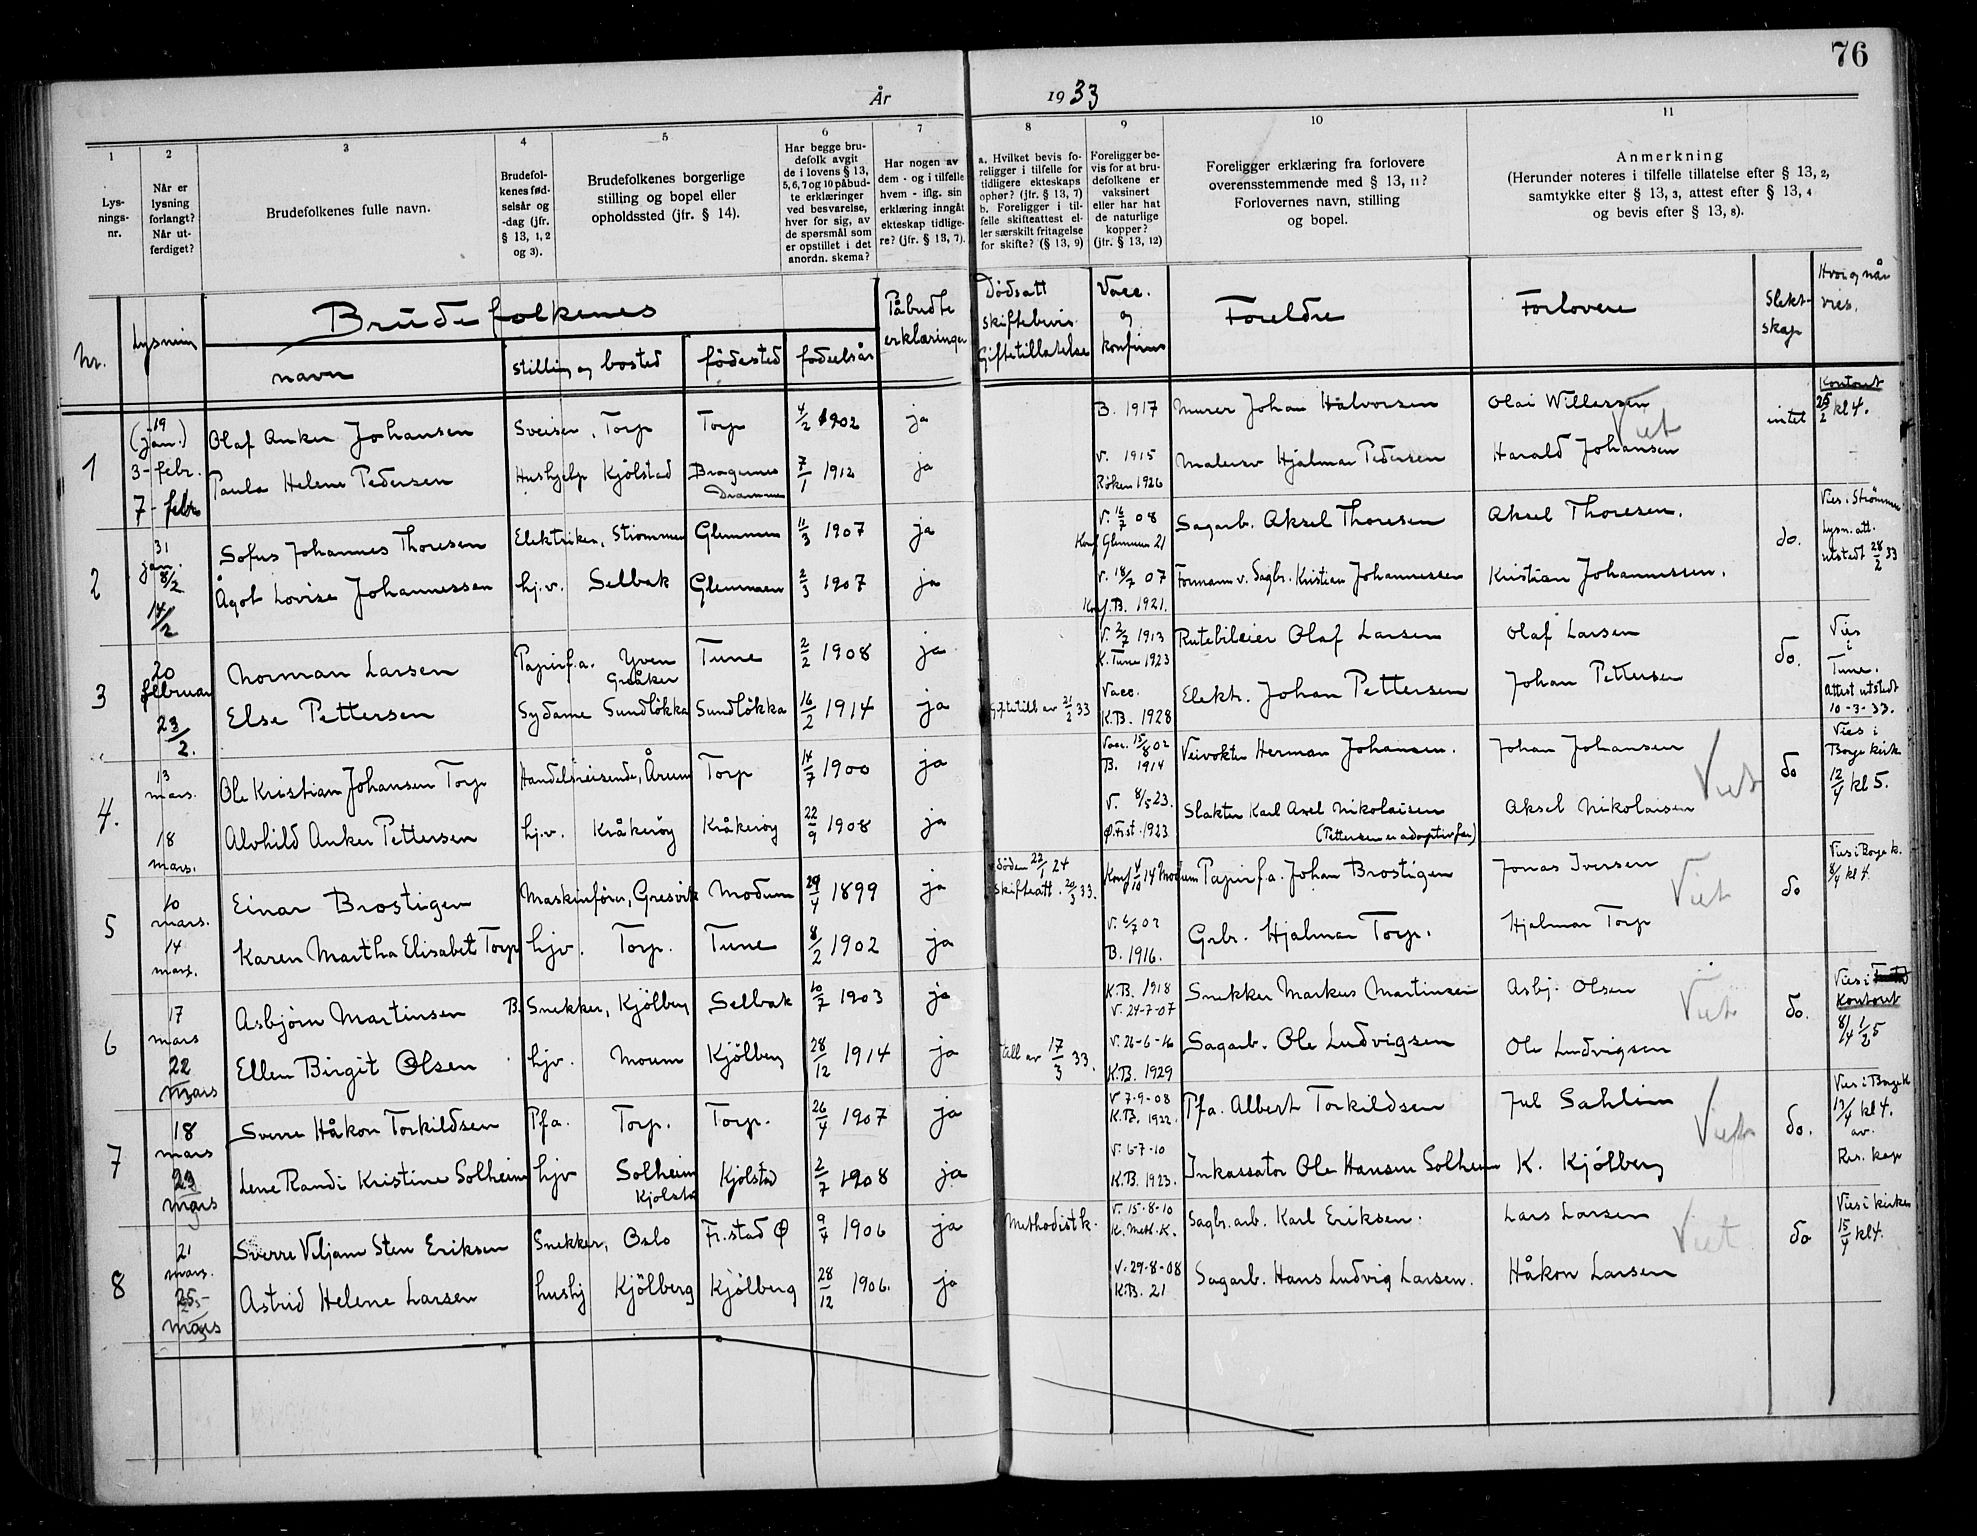 76
År 1933
1
2
3
4
5
6
7
8
9
10
11
Lys-
nings-
nr.
Når er
lysning
forlangt?
Når ut-
ferdiget?
Brudefolkenes fulle navn.
Brudefol-
kenes fød-
selsår og
-dag (jfr.
§ 13, 1, 2
og 3).
Brudefolkenes borgerlige
stilling og bopel eller
opholdssted (jfr. § 14).
Har begge bru-
defolk avgit
de i lovens § 13,
5, 6, 7 og 10 påbud-
te erklæringer
ved besvarelse,
hver for sig, av
de spørsmål som
er opstillet i det
anordn. skema?
Har nogen av
dem - og i tilfelle
hvem - iflg. sin
erklæring inngåt
ekteskap tidlige-
re? (jfr. § 13, 7).
a. Hvilket bevis fo-
religger i tilfelle for
tidligere ekteskaps
ophør? (jfr. § 13, 7)
b. Foreligger i til-
felle skifteattest el-
ler særskilt fritagelse
for skifte? (§ 13, 9)
Foreligger be-
vis for at bru-
defolkene er
vaksinert
eller har hat
de naturlige
kopper?
(jfr. § 13, 12)
Foreligger erklæring fra forlovere
overensstemmende med § 13, 11?
Forlovernes navn, stilling
og bopel.
Anmerkning
(Herunder noteres i tilfelle tillatelse efter § 13, 2,
samtykke efter § 13, 3, attest efter § 13, 4
og bevis efter § 13, 8).
Nr.
Lysning
Brudefolkenes
navn
stilling og bosted
födested
fodselsår
Påbudte
erklæringer
Dödsatt
skiftebevis
Giftetillatelse
Vacc.
og
konfirm
Foreldre
Forlovere
Slekt-
skap
Hvor og når
vies.
1
19
(jan.)
3-febr.
7-febr
Olaf Anker Johansen
Sveiser, Torp
Torp
4/2 1902
ja
B. 1917
Murer Johan Halvorsen
Olai Willersen
Viet
intet
Kontoret
25/2 kl 4.
Paula Helene Pedersen
Hushjelp Kjölstad
Bragernes
Drammen
7/1 1912
ja
V. 1915
Röken 1926
Malersv Hjalmar Pedersen
Harald Johansen
2
31
jan.
8/2
14/2
Sofus Johannes Thoresen
Elektriker, Strommen
Glemmen
11/3 1907
ja
V. 16/7 08
Konf Glemmen 21
Sagarb. Aksel Thoresen
Aksel Thoresen.
do.
Vies i Strömmen
Lysn. att.
utstedt 28/2 33
Ågot Lovise Johannessen
hj.v. Selbak
Glemmen
2/3 1907
ja
V. 18/7 07
Konf. B. 1921.
Formann v. Sagbr. Kristian Johannessen
Kristian Johannessen.
3
20
februar
23/2.
Norman Larsen
Papirf.a. Yven
Greåker
Tune
2/2 1908
ja
V. 2/7 1913
K. Tune 1923
Rutebileier Olaf Larsen
Olaf Larsen
do.
Vies
i
Tune.
Attest utstedt
10-3-33.
Else Pettersen
Sydame Sundlökka
Sundlökka
16/2 1914
ja
Giftetill av 21/2 33
Vacc.
K.B. 1928
Elektr. Johan Pettersen
Johan Pettersen
4.
13
mars.
18
mars.
Ole Kristian Johansen Torp
Handelsreisende, Årum
Torp
14/7 1900
ja
Vacc. 15/8 02
B. 1914
Veivokter Herman Johansen.
Johan Johansen
Viet
do
Vies i
Borge kirke
12/4 kl 5.
Alvhild Anker Pettersen
hj.v. Kråkeröy
Kråkeröy
22/9 1908
ja
V. 8/5 23.
Ø.Frst. 1923
Slakter Karl Axel Nikolaisen
(Pettersen er adoptivfar)
Aksel Nikolaisen
5
10
mars.
14
mars.
Einar Brostigen
Maskinförer, Gresvik
Modum
29/4 1899
ja
döden 22/1 24
skifteatt. 20/3 33.
Konf 4/10 14 Modum
Papirfa. Johan Brostigen
Jonas Iversen
Viet
do
Vies i Borge k.
8/4 kl 4.
Karen Martha Elisabet Torp
hjv. Torp.
Tune
8/2 1902
ja
B. 1916.
Grbr. Hjalmar Torp.
Hjalmar Torp
6
17
mars
22
mars
Asbjörn Martinsen
B. Snekker, Kjölberg
Selbak
10/7 1903
ja
K.B. 1918
V. 24-7-07
Snekker Markus Martinsen
Asbj. Olsen
Viet
do.
Vies i
Kontoret
8/4 1/2 5
Ellen Birgit Olsen
hjv. Moum
Kjölberg
28/12 1914
ja
till av 17/3 33.
V. 26-6-16
K.B. 1929
Sagarb. Ole Ludvigsen
Ole Ludvigsen
7
18
mars
23
mars
Sverre Håkon Torkildsen
Pfa. Torp.
Torp.
26/4 1907
ja
V 7-9-08
K.B. 1922.
Pfa. Albert Torkildsen
Jul Sahlin
Viet
do.
Vies i Borge K
12/4 kl 4.
av.
Res. kap
Lene Randi Kristine Solheim
hjv Solheim
Kjölstad
Kjölstad
2/7 1908
ja
V. 6-7-10
K.B. 1923.
Inkassator Ole Hansen Solheim
K. Kjölberg
8
21
mars.
25-
mars
Sverre Viljam Sten Eriksen
Snekker, Oslo
Fr.stad Ø
9/4 1906
ja
Methodistk.
V. 15-8-10
K. Met. K.
Sagbr.arb. Karl Eriksen.
Lars Larsen
Viet
do
Vies i kirken
15/4 kl 4.
Astrid Helene Larsen
hushj Kjölberg
Kjölberg
28/12 1906.
ja
V. 29-8-08
K.B. 21
Sagarb. Hans Ludvig Larsen.
Håkon Larsen